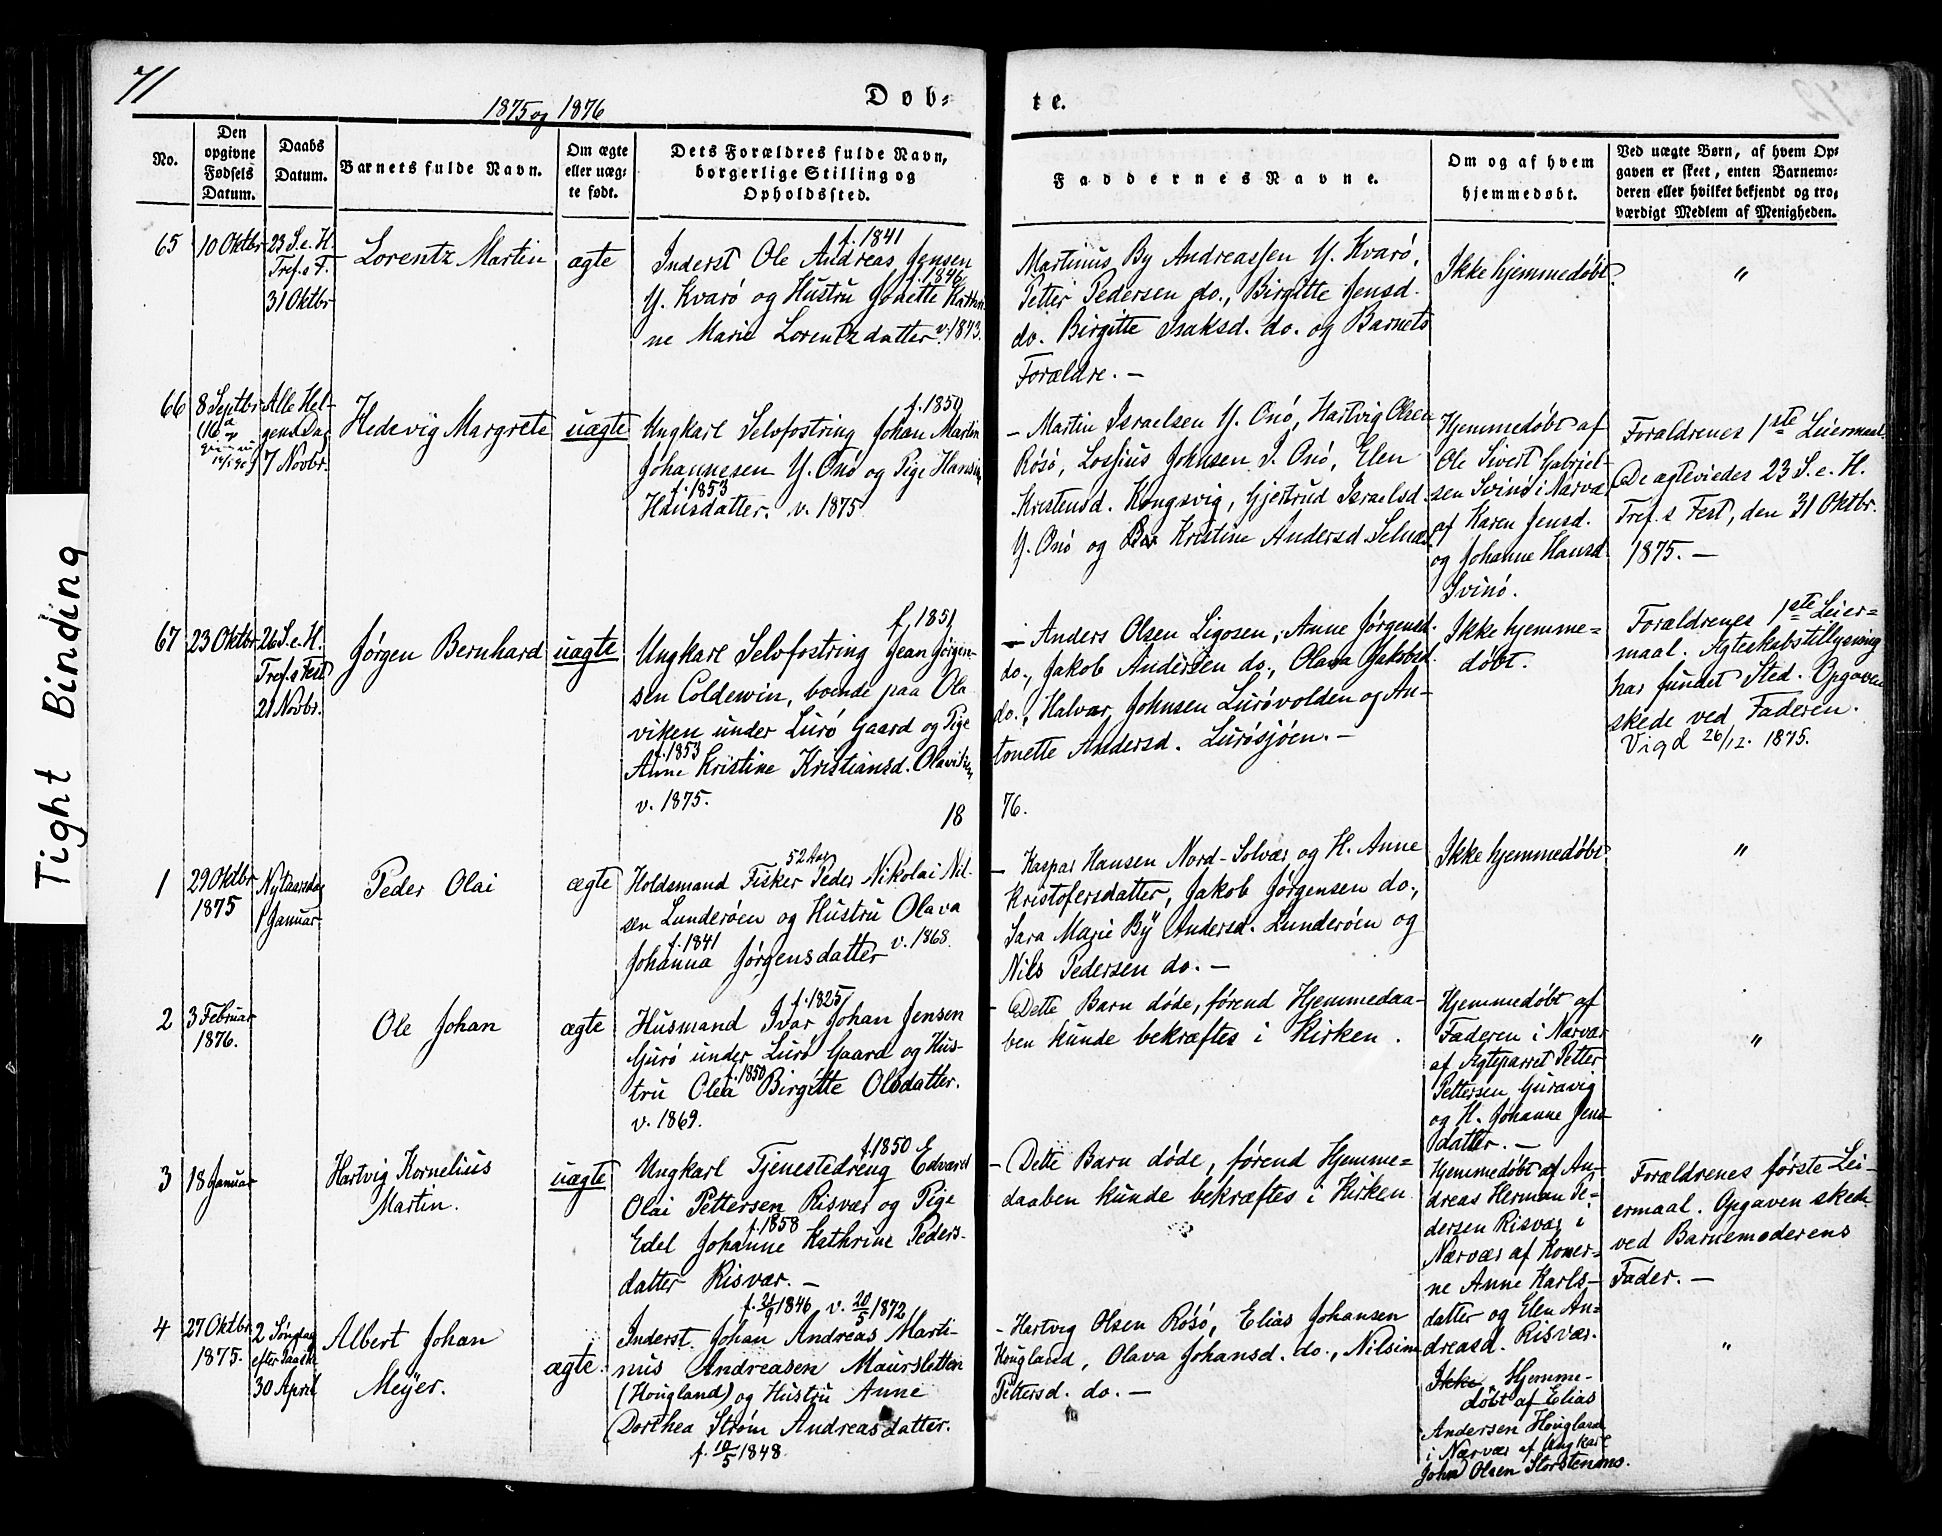 71
1875 og 1876
Døb-
te.
No.
Den opgivne Fødsels Datum.
Daabs Datum.
Barnets fulde Navn.
Om ægte eller uæg-te født.
Dets Forældres fulde Navn, borgerlige Stilling og Opholdssted.
Faddernes Navne.
Om og af hvem hjemmedøbt.
Ved uægte Børn, af hvem Op-gaven er skeet, enten Barnemo-deren eller hvilket bekjendt og tro-værdigt Medlem af Menigheden.
65
10 Oktbr
23 S. e. H.
Tref.s F.
31 Oktbr
Lorentz Martin
ægte
f. 1841
Inderst Ole Andreas Jensen
f. 1846
Y. Kvarø og Hustru Jonette Kathri-
ne Marie Lorentzdatter v. 1873.
Martinus By Andreassen Y. Kvarø,
Petter Pedersen do., Birgitte Jensd.
do. Birgitte Isaksd. do. og Barnets
Forældre. —
Ikke hjemmedøbt.
"
66
8 Septbr
Alle Hel-
gens Dag
7 Novbr.
Hedevig Margrete
uægte
f. 1850
Ungkarl Selvfostring Johan Martin
Johannesen Y. Onø og Pige Hansine
f. 1853
Hansdatter. v. 1875
— Martin Israelsen Y. Onø, Hartvig Olsen
Røsø, Lossius Johnsen I. Onø, Elen
Kristensd. Kongsvig, Gjertrud Israelsd.
Y. Onø og Kristine Andersd. Selnæs
Hjemmedøbt af
Ole Sivert Gabriel-
sen Svinø i Nærvær
af Karen Jensd.
og Johanne Hansd.
Svinø.
Forældrenes 1ste Leiermaal
De ægteviedes 23 S. e. H.
Tref.s Fest, den 31 Oktbr.
1875. —
67
23 Oktbr
26 S. e. H.
Tref.s Fest
21 Novbr.
Jørgen Bernhard
uægte
f. 1851
Ungkarl Selvfostring Jean Jørgen-
sen Coldewin, boende paa Ola-
viken under Lurø Gaard og Pige
f. 1853
Anne Kristine Kristiansd. Olaviken
v. 1875.
— Anders Olsen Ligosen, Anne Jørgensd.
do., Jakob Andersen do., Olava Jakobsd.
do., Halvar Johnsen Lurøvolden og An-
tonette Andersd. Lurøsjøen. —
Ikke hjemme=
døbt.
Forældrenes 1ste Leier=
maal. Ægteskabstillysning
har fundet Sted. Opgaven
skede ved Faderen.
Vigd 26/12. 1875.
18
76.
1
29 Oktbr
1875
Nytaarsdag
1 Januar
Peder Olai
ægte
52 Aar
Holdsmand Fisker Peder Nikolai Nil-
sen Lunderøen og Hustru Olava
f. 1841
Johanna Jørgensdatter v. 1868.
— Kaspar Hansen Nord-Solvær og H. Anne
Kristofersdatter, Jakob Jørgensen do.,
Sara Marie By Andersd. Lunderøen og
Nils Pedersen do. —
Ikke hjemmedøbt.
"
2
3 Februar
1876.
Ole Johan
ægte
f. 1825
Husmand Ivar Johan Jensen
Gurø under Lurø Gaard og Hus-
f. 1850
tru Olea Birgitte Olsdatter.
v. 1869.
— Dette Barn døde, førend Hjemmedaa-
ben kunde bekræftes i Kirken.
Hjemmedøbt af
Faderen i Nærvær
af Ægteparret Petter
Pettersen Guravig
og H. Johanne Jens
datter. —
"
3
18 Januar
Hartvig Kornelius
Martin.
uægte
f. 1850
Ungkarl Tjenestedreng Edvard
Olai Pettersen Risvær og Pige
f. 1858
Edel Johanne Kathrine Peders-
datter Risvær. —
— Dette Barn døde, førend Hjemme=
daaben kunde bekræftes i Kirken
Hjemmedøbt af An-
dreas Herman Pe-
dersen Risvær i
Nærvær af Koner=
ne Anne Karls-
datter og Elen An-
dreasd. Risvær.
Forældrenes første Lei-
ermaal. Opgaven skede
ved Barnemoderens
Fader. —
4
27 Oktbr
1875.
2 Søndag
efter Paaske
30 April
Albert Johan
Meyer.
ægte.
f. 21/9 1846 v. 20/5 1872
Inderst Johan Andreas Marti-
nus Andreasen Maursletten
(Hougland) og Hustru Anne
Dorthea Strøm Andreasdatter.
f. 10/5 1848.
— Hartvig Olsen Røsø, Elias Johansen
Hougland, Olava Johansd. do., Nilsine
Pettersd. do. —
Ikke Hjemme-
døbt af Elias
Andersen Hougland
i Nærvær af Ungkarl
John Olsen Storstennæs.
"
Tight Binding